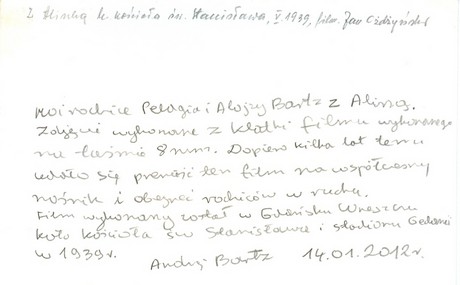 Z Aliną k. kościoła św. Stanisława, V 1939, film. Jan Ożdżyński
Moi rodzice Pelagia i Alojzy Bartz z Aliną.
Zdjęcie wykonane z klatki filmu wykonanego
na taśmie 8 mm. Dopiero kilka lat temu
udało się przenieść ten film na współczesny
nośnik i obejrzeć rodziców w ruchu.
Film wykonany został w Gdańsku Wrzeszczu
koło kościoła św Stanisława i stadionu Gedanii
w 1939r.
Andrzej Bartz 14.01.2012r.